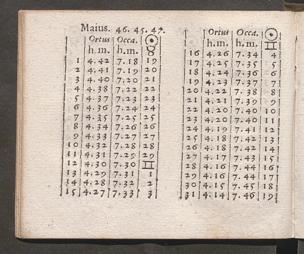 Maius. 46. 45. 47.
Ortus Occa. ☉
h. m. h. m. ♉
1 4.42 7.18 19
2 4.41 7.19 20
3 4.40 7.20 21
4 4.38 7.22 22
5 4.37 7.23 23
6 4.36 7.24 24
7 4.35 7.25 25
8 4.34 7.26 26
9 4.33 7.27 27
10 4.32 7.28 28
11 4.31 7.29 29
12 4.30 7.30 ♊
13 4.29 7.31 1
14 4.28 7.32 2
15 4.27 7.33 3
Ortus Occa. ☉
h. m. h. m. ♊
16 4.26 7.34 4
17 4.25 7.35 5
18 4.24 7.36 6
19 4.23 7.37 7
20 4.22 7.38 8
21 4.21 7.39 9
22 4.20 7.40 10
23 4.20 7.40 11
24 4.19 7.41 12
25 4.18 7.42 13
26 4.18 7.42 14
27 4.17 7.43 15
28 4.17 7.43
29 4.16 7.44 17
30 4.15 7.45 18
31 4.14 7.46 19